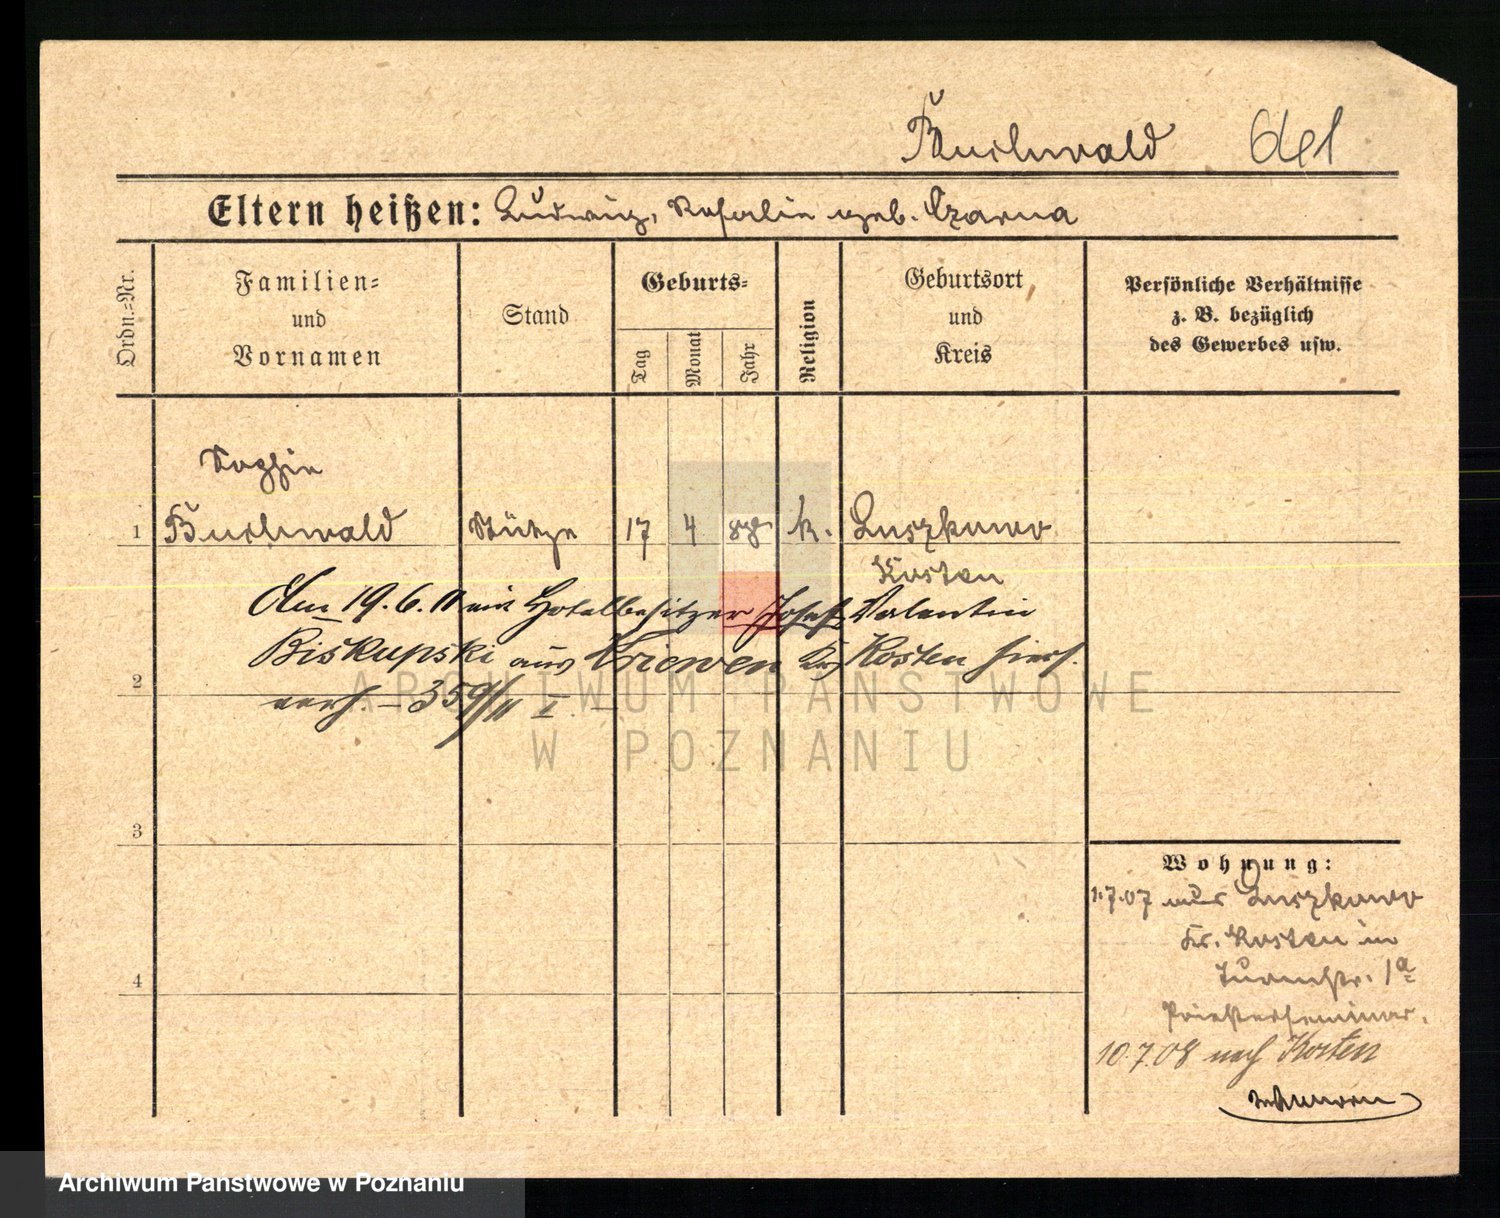 Buchwald
Eltern heißen: Ludwig, Rosalie geb. Czarna
Ordn.-Nr.
Familien- und Vornamen
Stand
Geburts-
Tag
Monat
Jahr
Religion
Geburtsort und Kreis
Persönliche Verhältnisse
z. B. bezüglich
des Gewerbes usw.
Sophie
1 Buchwald Stütze 17 4 88 k. Luszkowo
Kosten
Am 19.6.11 ein Hotelbesitzer Josef Valentin
2 Biskupski aus Kriewen Krs Kosten hies.
verh. - 359/11 I -
ARCHIWUM PAŃSTWOWE
W POZNANIU
3
4
Wohnung:
1.7.07 aus Luszkowo
Kr. Kosten in
Turmstr. 1a
Priesterseminar.
10.7.08 nach Kosten
Archiwum Państwowe w Poznaniu